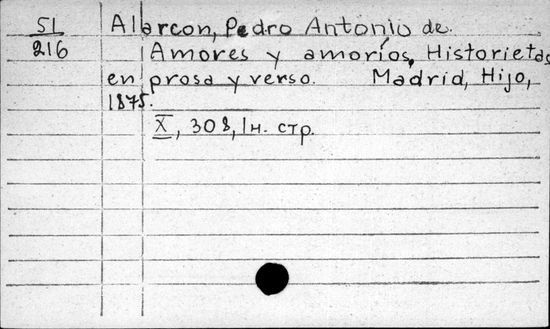 51 Alarcon, Pedro Antonio de.
216 Amores y amoríos. Historietas
en prosa y verso. Madrid, Hijo,
1875.
X, 308, 1 н. стр.